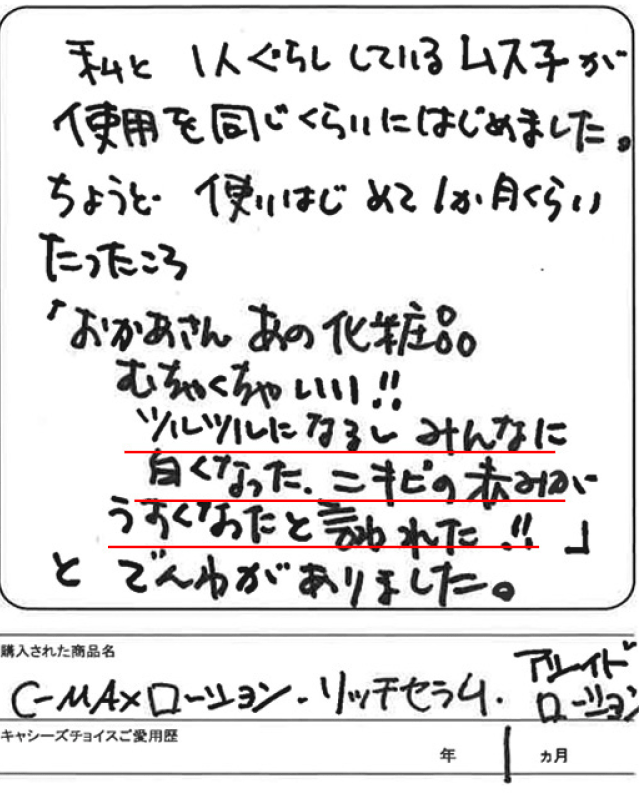 私と 1人ぐらししているムス子が
使用を同じくらいにはじめました。
ちょうど 使いはじめて1か月くらい
たったころ
「おかあさん あの化粧品
むちゃくちゃいい!!
ツルツルになるし みんなに
白くなった、ニキビの赤みが
うすくなったと言われた!!」
と でんわがありました。
購入された商品名
C-MAXローション・リッチセラム・アルーイド
ローション
キャシーズチョイスご愛用歴
年 1 ヵ月